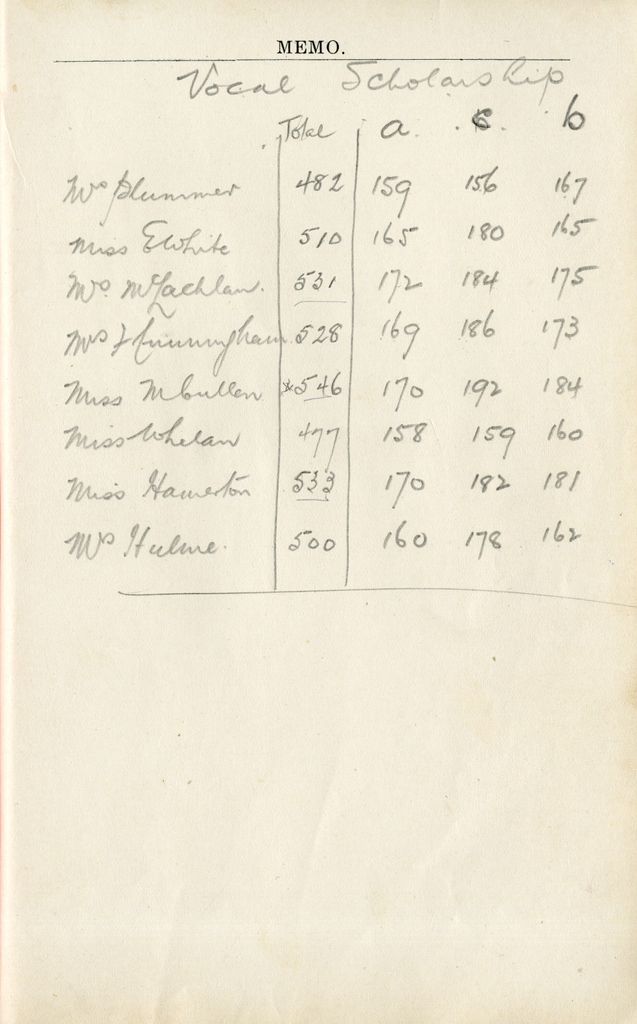 MEMO.
Vocal Scholarship
Total a. c. b
Mrs Plummer 482 159 156 167
Miss E White 510 165 180 165
Mrs. McLachlan. 531 172 184 175
Mrs J Cunningham 528 169 186 173
Miss McCullen *546 170 192 184
Miss Whelan 477 158 159 160
Miss Hamerton 533 170 182 181
Mrs Hulme. 500 160 178 162